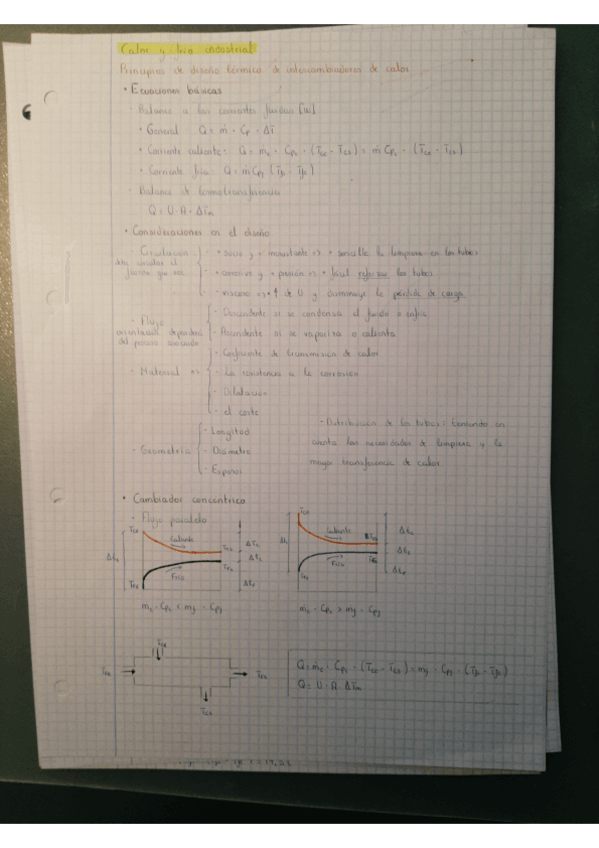 Calor y frío industrial
Principios de diseño térmico de intercambiadores de calor
• Ecuaciones básicas
- Balance a las corrientes fluidas [w]
• General: Q = ṁ · Cp · ΔT
• Corriente caliente: Q = ṁc · Cpc · (Tce - Tcs) = ṁ Cpc · (Tce - Tcs)
• Corriente fría: Q = ṁ Cpf (Tfs - Tfe)
- Balance de termotransferencia
Q = U · A · ΔTm
• Consideraciones en el diseño
- Circulación
debe circular el
fluido que sea
• + sucio y + incrustante => + sencilla la limpieza en los tubos
• + corrosivo y + presión => + fácil reforzar los tubos
- viscoso => ↑ de U y disminuye la pérdida de carga
- Flujo
orientación dependiendo
del proceso asociado
- Descendente si se condensa el fluido o enfría
- Ascendente si se vaporiza o calienta
- Material =>
- Coeficiente de transmisión de calor
- La resistencia a la corrosión
- Dilatación
- el corte
- Geometría
- Longitud
- Diámetro
- Espesor
- Distribución de los tubos: teniendo en
cuenta las necesidades de limpieza y la
mayor transferencia de calor
• Cambiador concéntrico
- Flujo paralelo
Tce
Caliente
Fría
Tfe
Tcs
Tfs
Δtc
Δts
Δtf
Δte
ṁc · Cpc < ṁf · Cpf
Tce
Caliente
Tfe
Tcs
Tfs
Δtc
Δts
Δtf
ṁc · Cpc > ṁf · Cpf
Tce
Tfe
Tfs
Tcs
Q = ṁc · Cpc · (Tce - Tcs) = ṁf · Cpf · (Tfs - Tfe)
Q = U · A · ΔTm